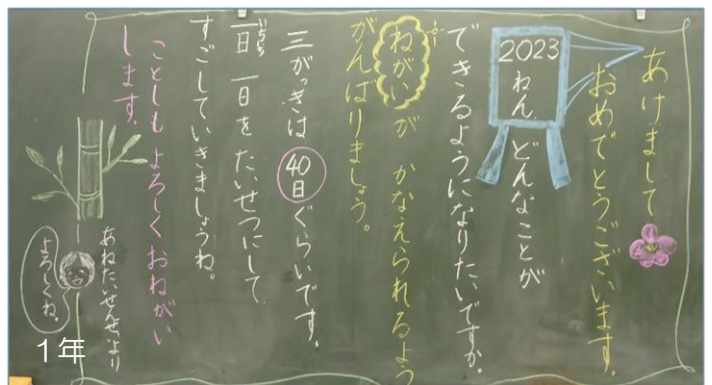 あけまして
おめでとうございます。
2023
ねん、どんなことが
できるようになりたいですか。
ねがいが かなえられるよう
がんばりましょう。
三がっきは 40日ぐらいです。
一日 一日を たいせつにして
いちにち
すごしていきましょうね。
ことしも よろしく おねがい
します。
あねたいせんせいより
よろしくね。
1年